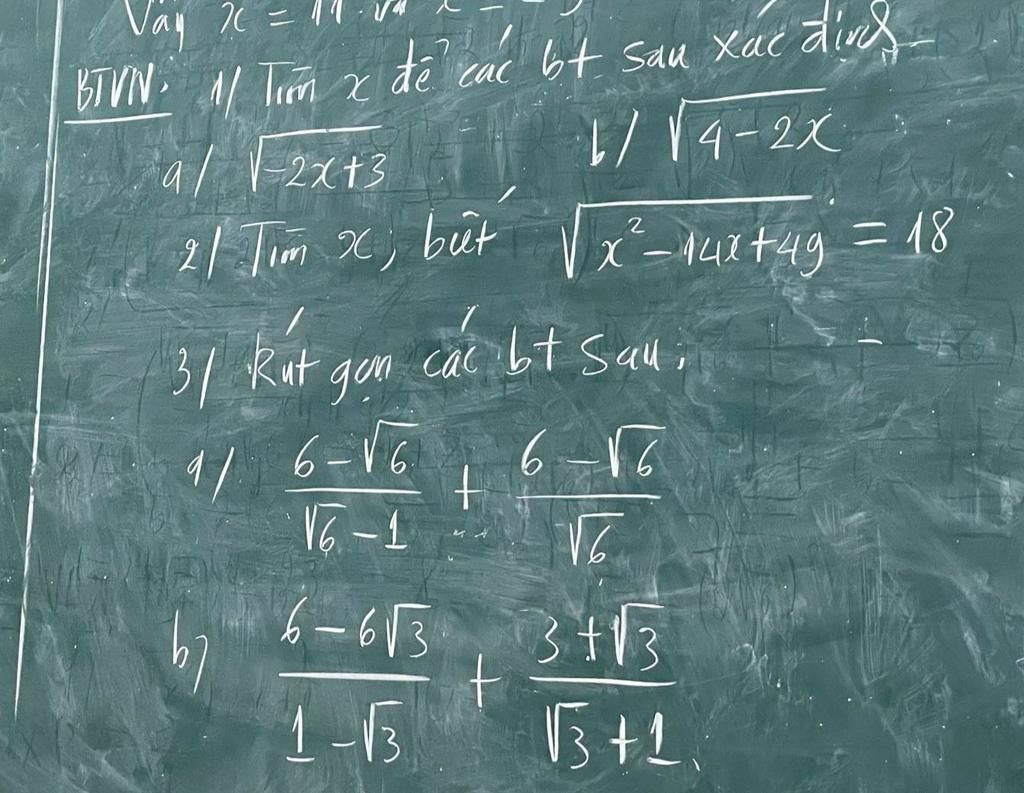 Vậy x = 11
BTVN: 1/ Tìm x để các bt sau xác định
a/ √(-2x+3) b/ √(4-2x)
2/ Tìm x, biết √(x²-14x+49) = 18
3/ Rút gọn các bt sau:
a/ (6-√6)/(√6-1) + (6-√6)/√6
b) (6-6√3)/(1-√3) + (3+√3)/(√3+1)